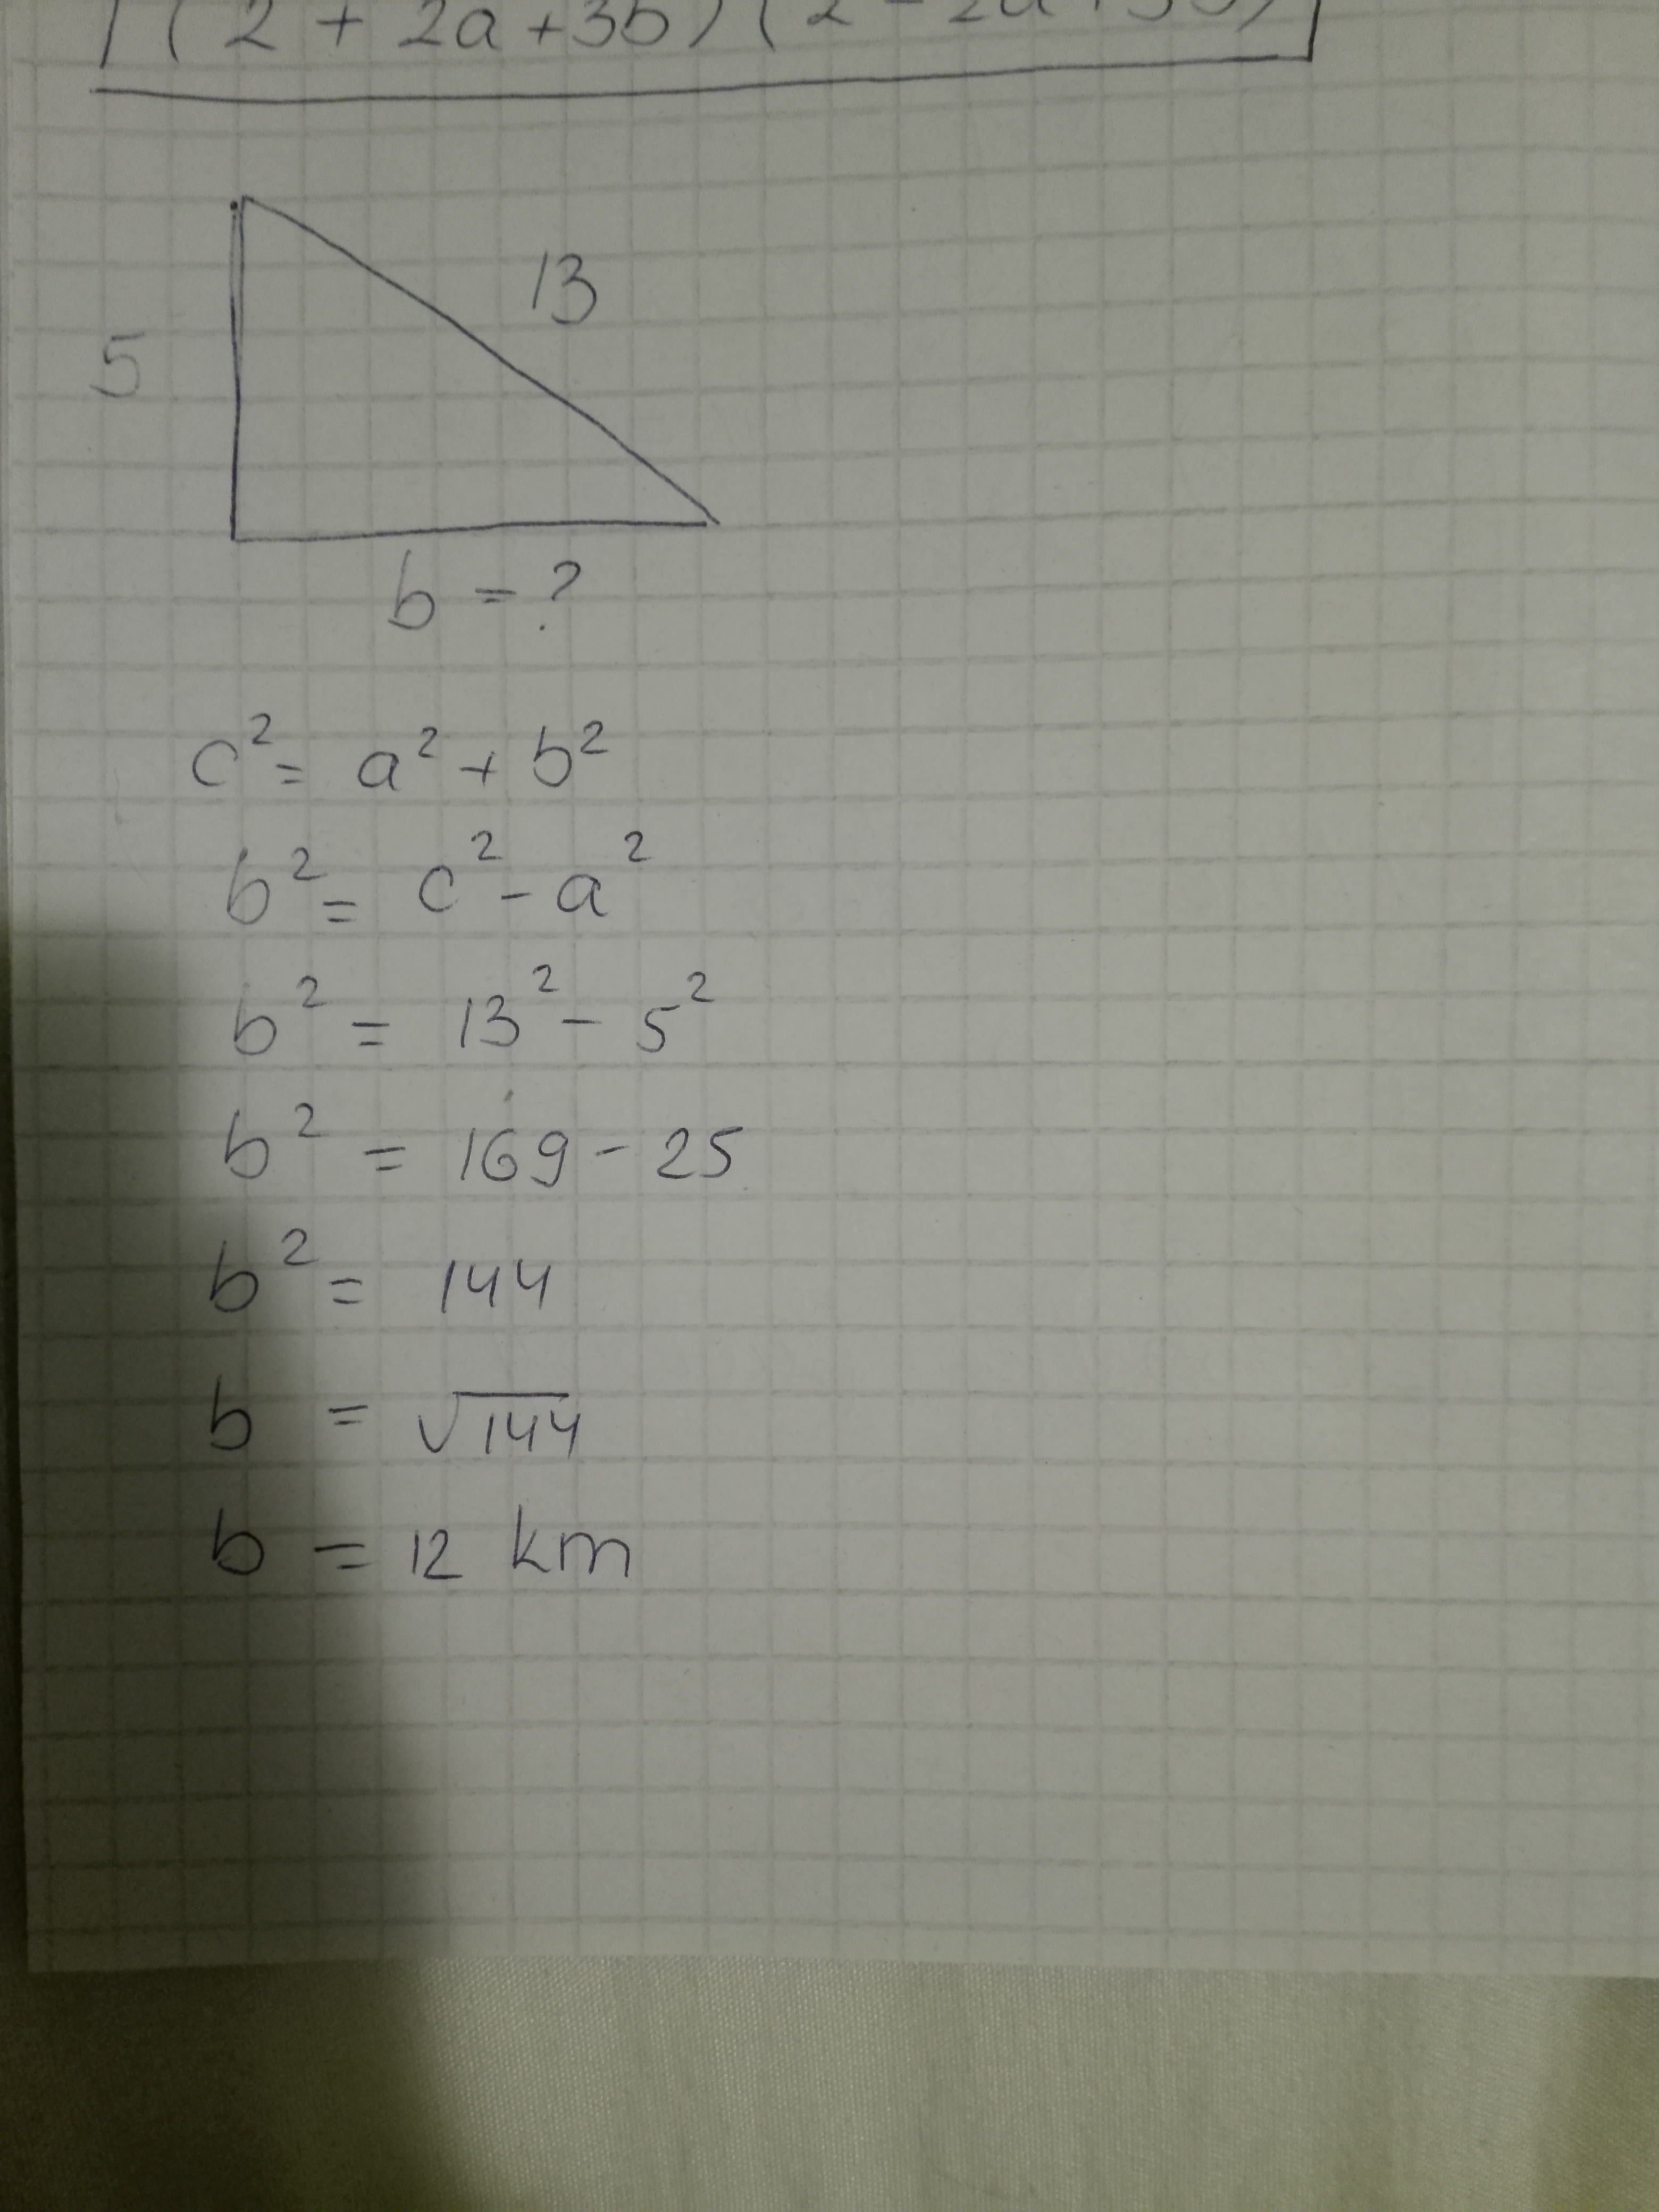 (2 + 2a + 3b) (2 - 2a + 3b)
13
5
b = ?
c² = a² + b²
b² = c² - a²
b² = 13² - 5²
b² = 169 - 25
b² = 144
b = √144
b = 12 km